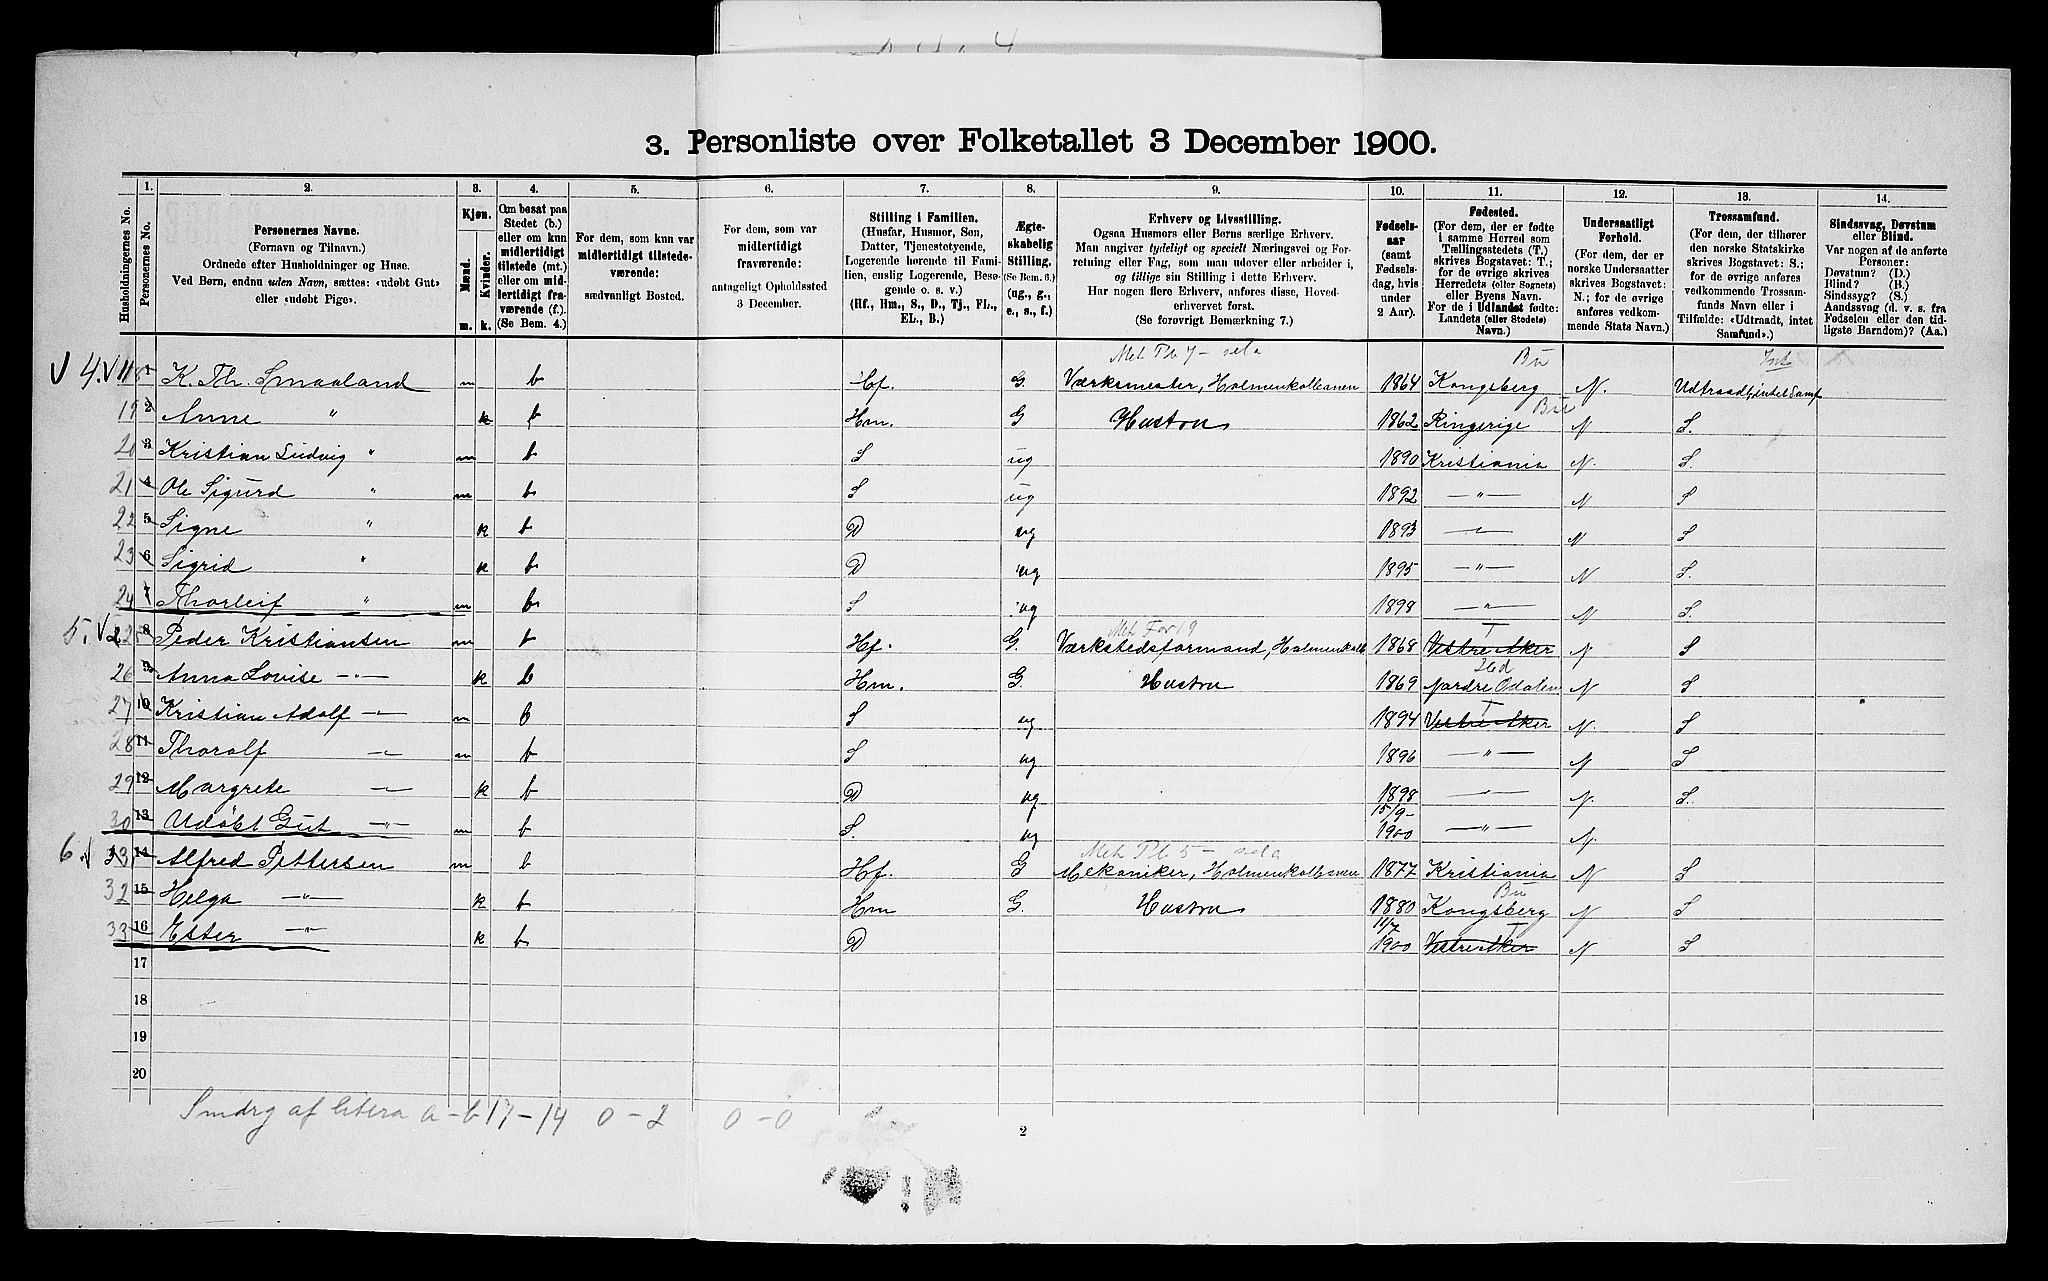 3. Personliste over Folketallet 3 December 1900.
Husholdningernes No.
1. Personernes No.
2. Personernes Navne.
(Fornavn og Tilnavn.)
Ordnede efter Husholdninger og Huse.
Ved Børn, endnu uden Navn, sættes: «udøbt Gut»
eller «udøbt Pige».
3. Kjøn.
Mænd. m.
Kvinder. k.
4. Om bosat paa
Stedet (b.)
eller om kun
midlertidigt
tilstede (mt.)
eller om mid-
lertidigt fra-
værende (f.).
(Se Bem. 4.)
5. For dem, som kun var
midlertidigt tilstede-
værende:
sædvanligt Bosted.
6. For dem, som var
midlertidigt
fraværende:
antageligt Opholdssted
3 December.
7. Stilling i Familien.
(Husfar, Husmor, Søn,
Datter, Tjenestetyende,
Logerende hørende til Fami-
lien, enslig Logerende, Besø-
gende o. s. v.)
(Hf., Hm., S., D., Tj., FL.,
EL., B.)
8. Ægte-
skabelig
Stilling.
(Se Bem. 6.)
(ug., g.,
e., s., f.)
9. Erhverv og Livsstilling.
Ogsaa Husmors eller Børns særlige Erhverv.
Man angiver tydeligt og specielt Næringsvei og For-
retning eller Fag, som man udover eller arbeider i,
og tillige sin Stilling i dette Erhverv.
Har nogen flere Erhverv, anføres disse, Hoved-
erhvervet først.
(Se forøvrigt Bemærkning 7.)
10. Fødsels-
aar
(samt
Fødsels-
dag, hvis
under
2 Aar).
11. Fødested.
(For dem, der er fødte
i samme Herred som
Tællingsstedets (T.)
skrives Bogstavet: T.;
for de øvrige skrives
Herredets (eller Sognets)
eller Byens Navn.
For de i Udlandet fødte:
Landets (eller Stedets)
Navn.)
12. Undersaatligt
Forhold.
(For dem, der er
norske Undersaatter
skrives Bogstavet:
N.; for de øvrige
anføres vedkom-
mende Stats Navn.)
13. Trossamfund.
(For dem, der tilhører
den norske Statskirke
skrives Bogstavet: S.;
for de øvrige anføres
vedkommende Trossam-
funds Navn eller i
Tilfælde: «Udtraadt, intet
Samfund».)
14. Sindssvag, Døvstum
eller Blind.
Var nogen af de anførte
Personer:
Døvstum? (D.)
Blind? (B.)
Sindssyg? (S.)
Aandssvag (d. v. s. fra
Fødselen eller den tid-
ligste Barndom)? (Aa.)
4. 18 1 K. Th. Smaaland m b Hf. G. Værksmester, Holmenkolbanen 1864 Kongsberg Bu N. Udtraadt, intet Samf
19 2 Anne " k b Hm. G Hustru 1862 Ringerige Bu N S.
20 3 Kristian Ludvig " m b S ug 1890 Kristiania N. S.
21 4 Ole Sigurd " m b S ug 1892 —"— N S
22 5 Signe " k b D ug 1893 —"— N S
23 6 Sigrid " k b D ug 1895 —"— N S.
24 7 Thorleif " m b S ug 1898 —"— N S.
5. 25 8 Peder Kristiansen m b Hf. G. Værkstedsformand, Holmenkolb 1868 Vestre Aker T N S
26 9 Anna Lovise —"— k b Hm. G. Hustru 1869 Nordre Odalen Hed N S
27 10 Kristian Adolf —"— m b S ug 1894 Vestre Aker T N. S
28 11 Thoralf —"— m b S ug 1896 —"— N S
29 12 Margrete —"— k b D ug 1898 —"— N. S.
30 13 Udøbt Gut —"— m b S. ug 15/9-1900 —"— N.
6. 14 Alfred Pettersen m b Hf. G Mekaniker, Holmenkolbanen 1877 Kristiania N S
32 15 Helga —"— k b Hm G. Hustru 1880 Kongsberg Bu N S
33 16 Ester —"— k b D 11/7 1900 Vestre Aker T N S
17
18
19
20
Smdrg af litera a - b 17 - 14 0 - 2 0 - 0
2